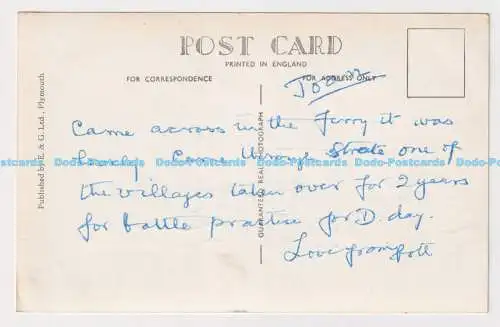 POST CARD
PRINTED IN ENGLAND
FOR CORRESPONDENCE
FOR ADDRESS ONLY
Came across in the Ferry it was
lovely Came through Strete one of
the villages taken over for 2 years
for battle practice for D. day.
Love from
Published by E. & G. Ltd., Plymouth
GUARANTEED REAL PHOTOGRAPH
Dodo-Postcards Dodo-Postcards Dodo-Postcards Dodo-Postcards Dodo-Postcards